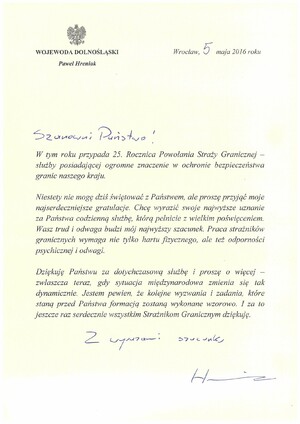 WOJEWODA DOLNOŚLĄSKI
Paweł Hreniak
Wrocław, 5 maja 2016 roku
Szanowni Państwo!
W tym roku przypada 25. Rocznica Powołania Straży Granicznej –
służby posiadającej ogromne znaczenie w ochronie bezpieczeństwa
granic naszego kraju.
Niestety nie mogę dziś świętować z Państwem, ale proszę przyjąć moje
najserdeczniejsze gratulacje. Chcę wyrazić swoje najwyższe uznanie
za Państwa codzienną służbę, którą pełnicie z wielkim poświęceniem.
Wasz trud i odwaga budzi mój najwyższy szacunek. Praca strażników
granicznych wymaga nie tylko hartu fizycznego, ale też odporności
psychicznej i odwagi.
Dziękuję Państwu za dotychczasową służbę i proszę o więcej –
zwłaszcza teraz, gdy sytuacja międzynarodowa zmienia się tak
dynamicznie. Jestem pewien, że kolejne wyzwania i zadania, które
staną przed Państwa formacją zostaną wykonane wzorowo. I za to
jeszcze raz serdecznie wszystkim Strażnikom Granicznym dziękuję.
Z wyrazami szacunku